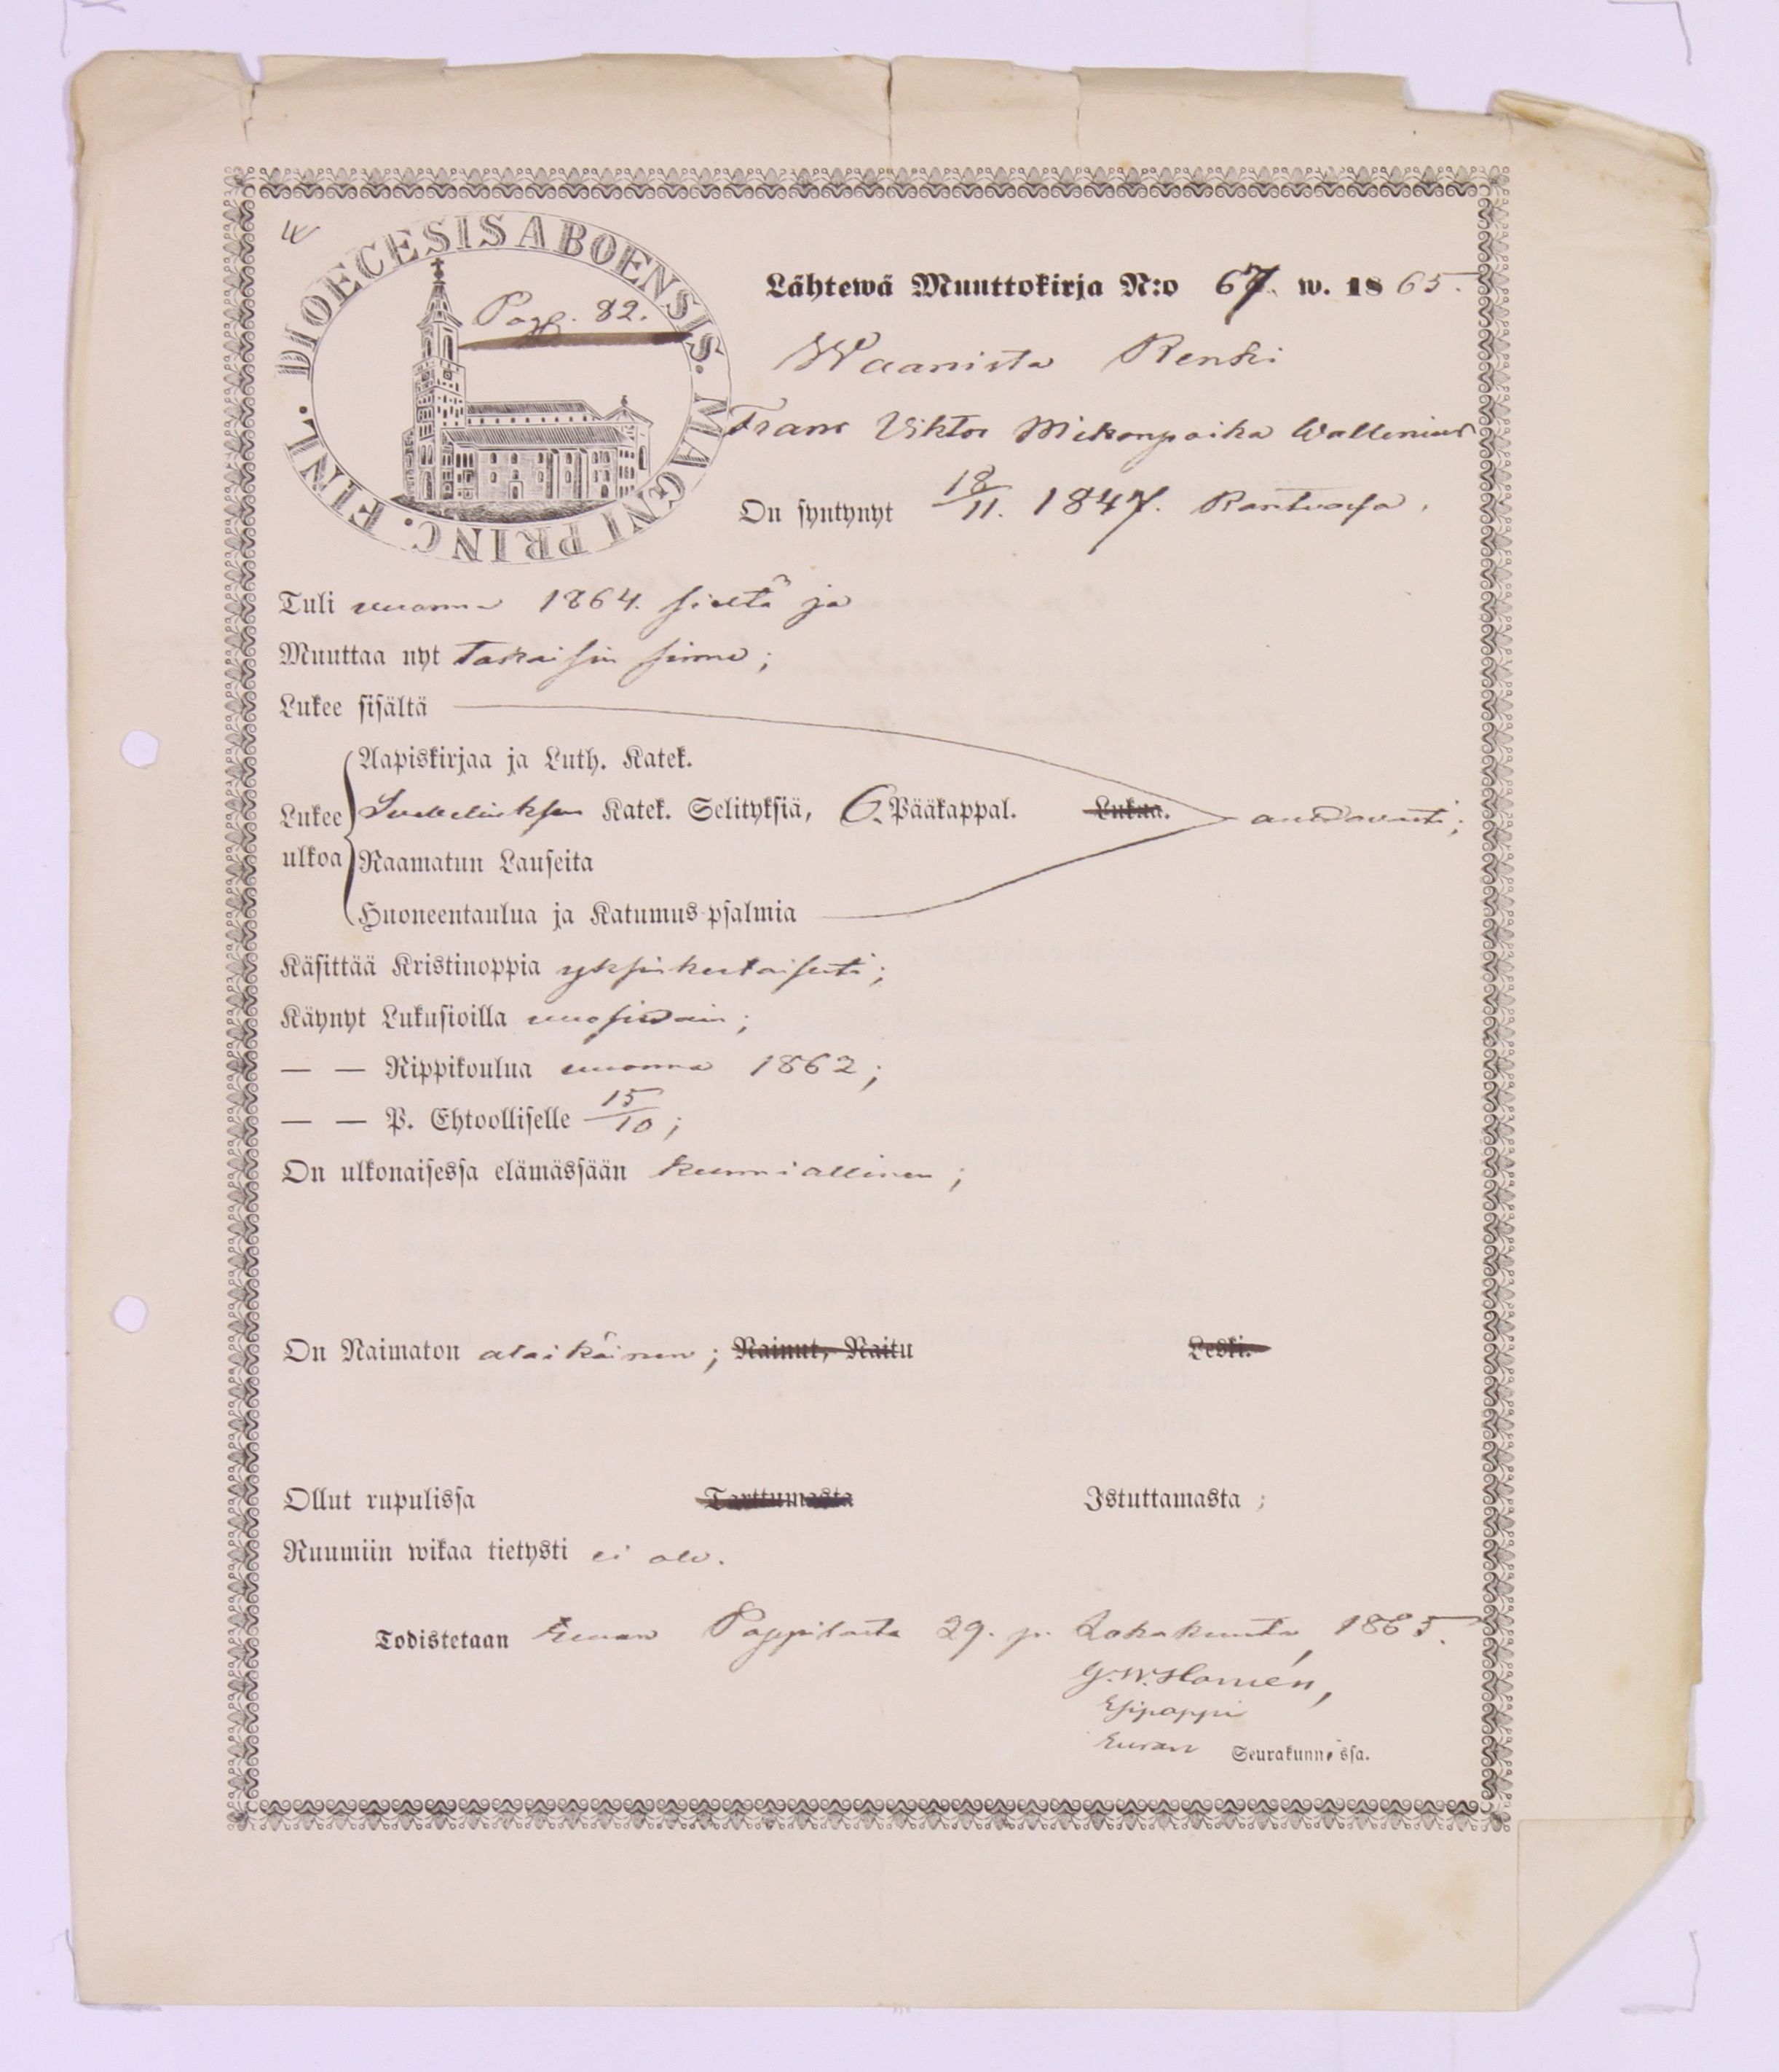 DIOECESIS ABOENSIS. MAGNI PRINC. FINL.
Pag. 82.
Lähtewä Muuttokirja N:o 67. w. 1865.
Waanista Renki
Frans Viktor Mikonpoika Wallenius
On syntynyt 18/11. 1847. Kantwasa.
Tuli vuonna 1864. sieltä ja
Muuttaa nyt takaisin sinne;
Lukee sisältä
Aapiskirjaa ja Luth. Katek.
Lukee Katek. Selityksiä, 6. Pääkappal. Lukua. auttavasti;
ulkoa Raamatun Lauseita
Huoneentaulua ja Katumus-psalmia
Käsittää Kristinoppia yksinkertaisesti;
Käynyt Lukusioilla vuosittain;
— — Rippikoulua vuonna 1862;
— — P. Ehtoolliselle 15/10;
On ulkonaisessa elämässään kunniallinen;
On Naimaton alaikäinen; Nainut, Naitu Leski.
Ollut rupulissa Tarttumasta Istuttamasta;
Ruumiin wikaa tietysti ei ole.
Todistetaan Euran Pappilasta 29. p. Lokakuuta 1865.
G. W. Homén,
Esipappi
Euran Seurakunnassa.